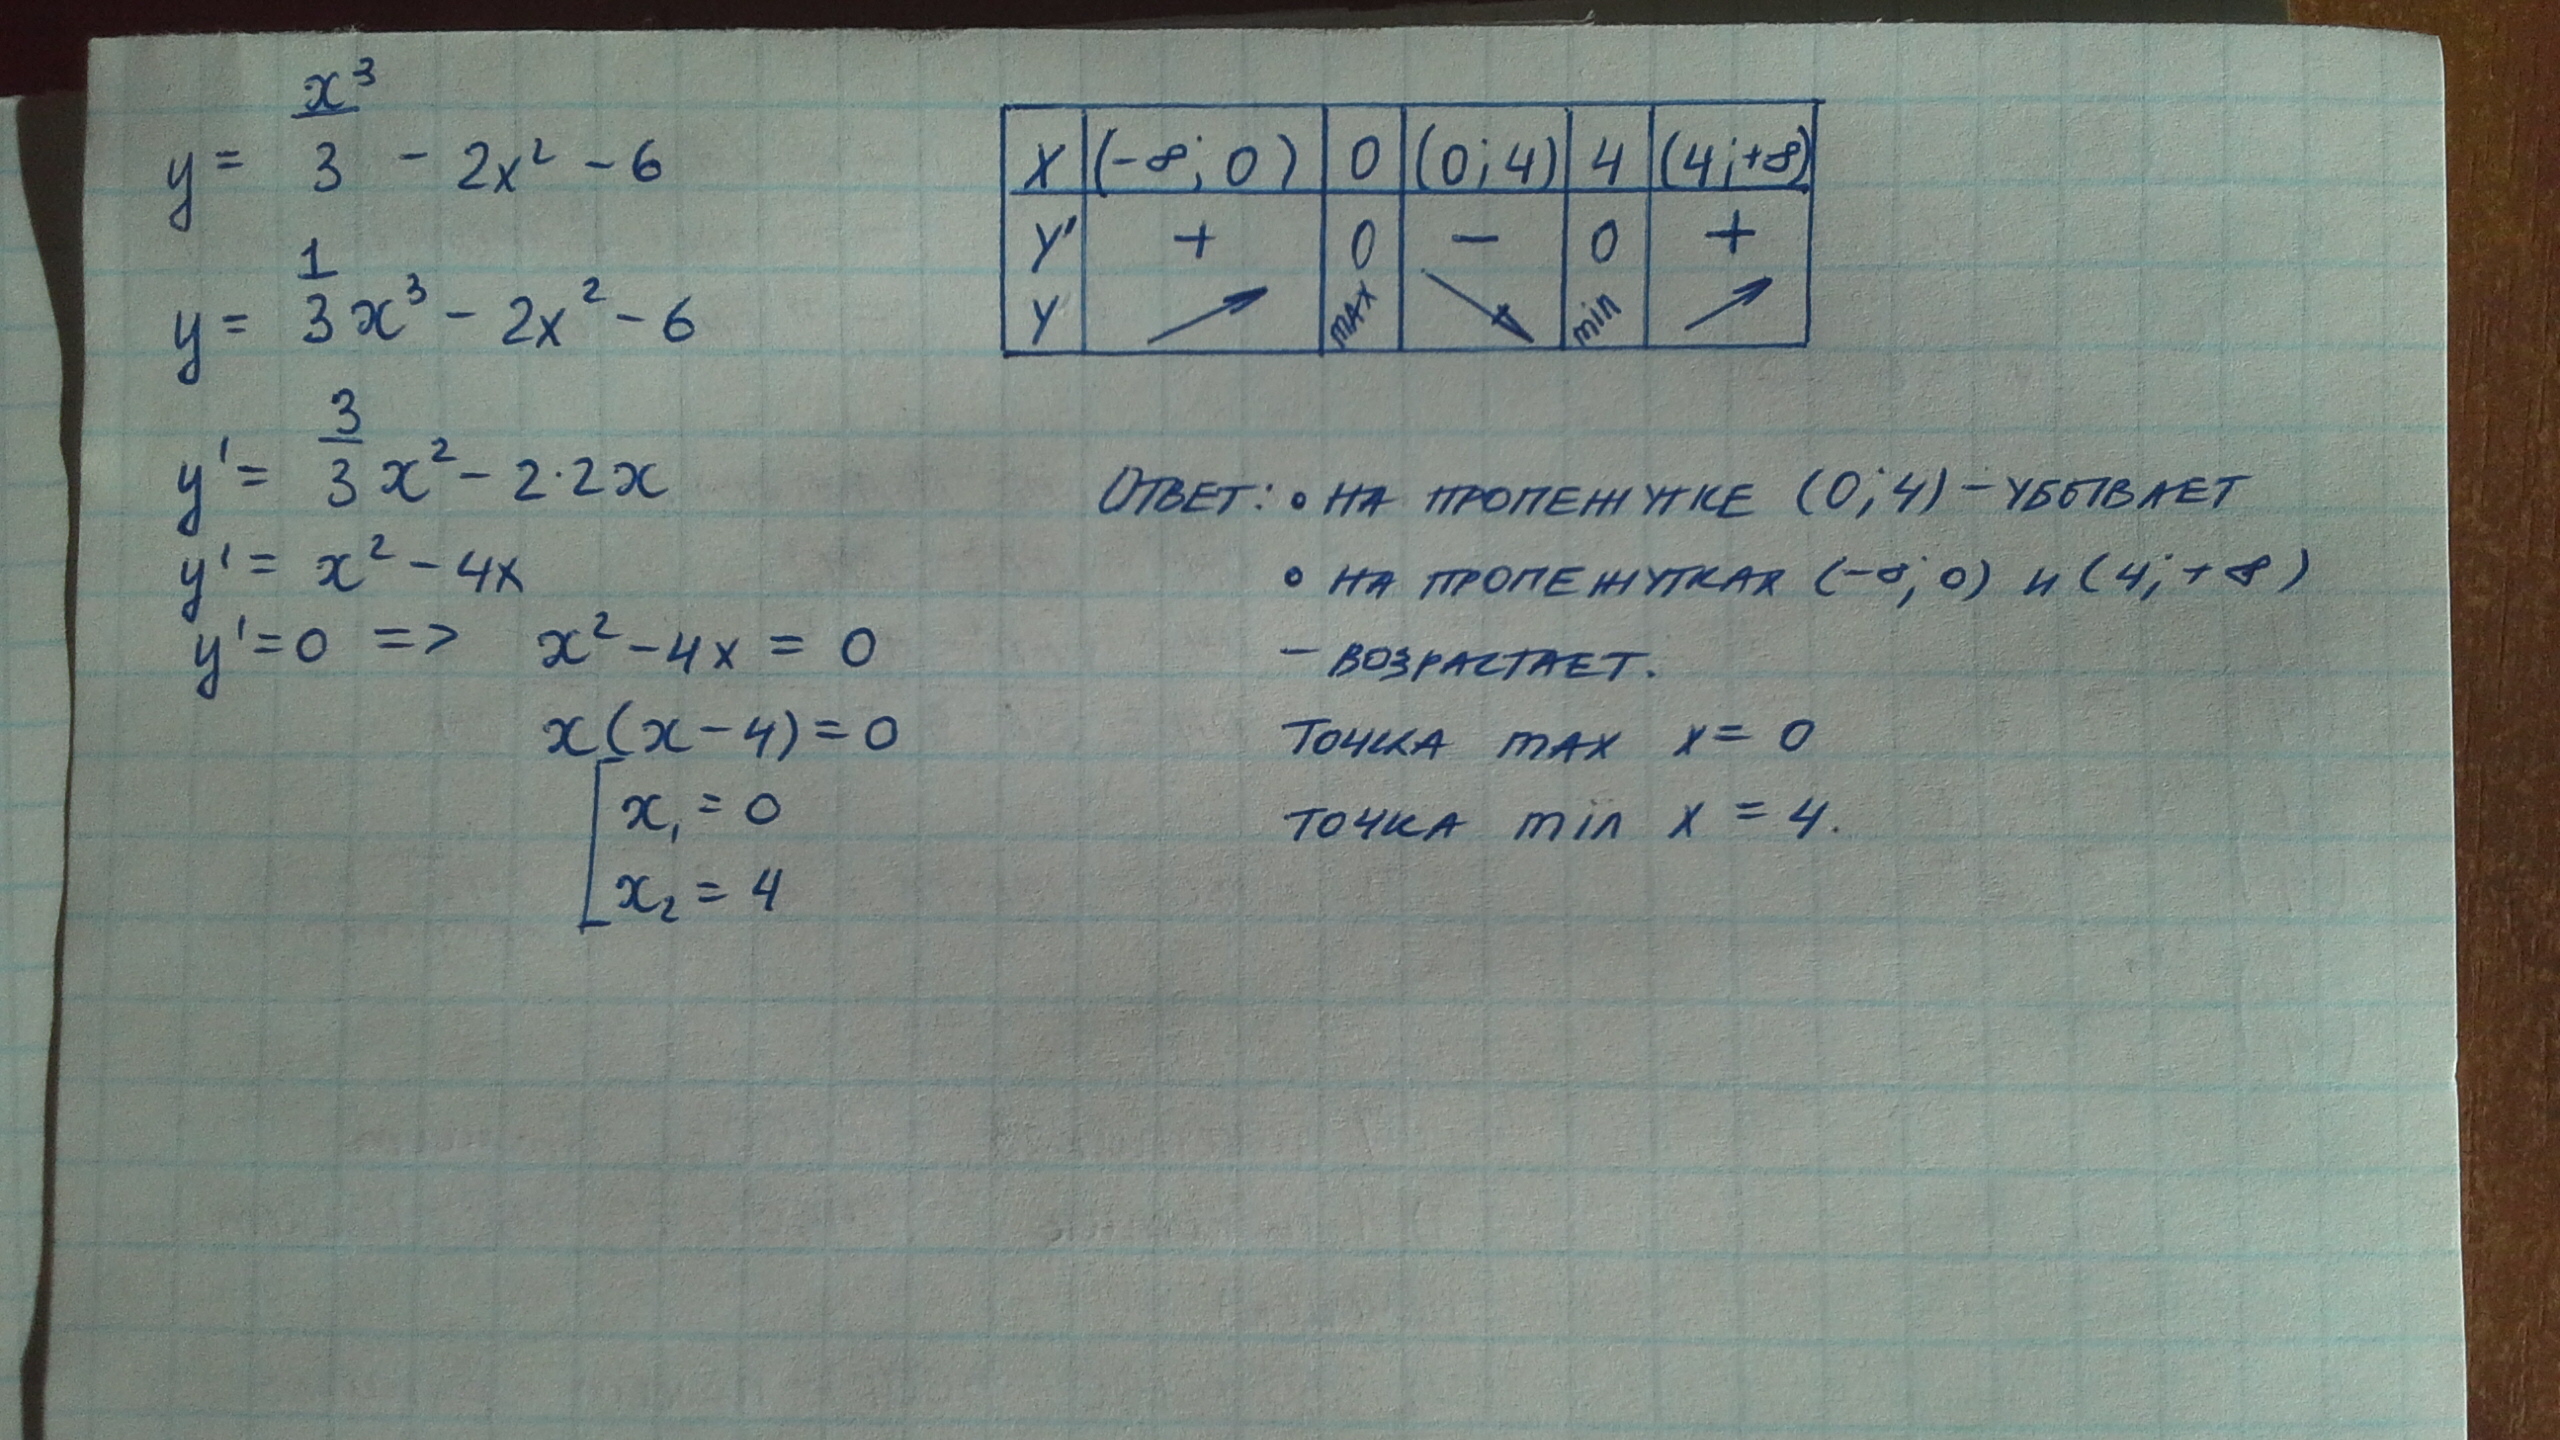 y = x³/3 - 2x² - 6
y = 1/3 x³ - 2x² - 6
y' = 3/3 x² - 2·2x
y' = x² - 4x
y' = 0 => x² - 4x = 0
x(x - 4) = 0
x₁ = 0
x₂ = 4
X (-∞; 0) 0 (0; 4) 4 (4; +∞)
Y' + 0 - 0 +
Y ↗ max ↘ min ↗
Ответ: • на промежутке (0; 4) - убывает
• на промежутках (-∞; 0) и (4; +∞)
- возрастает.
Точка max x = 0
точка min x = 4.